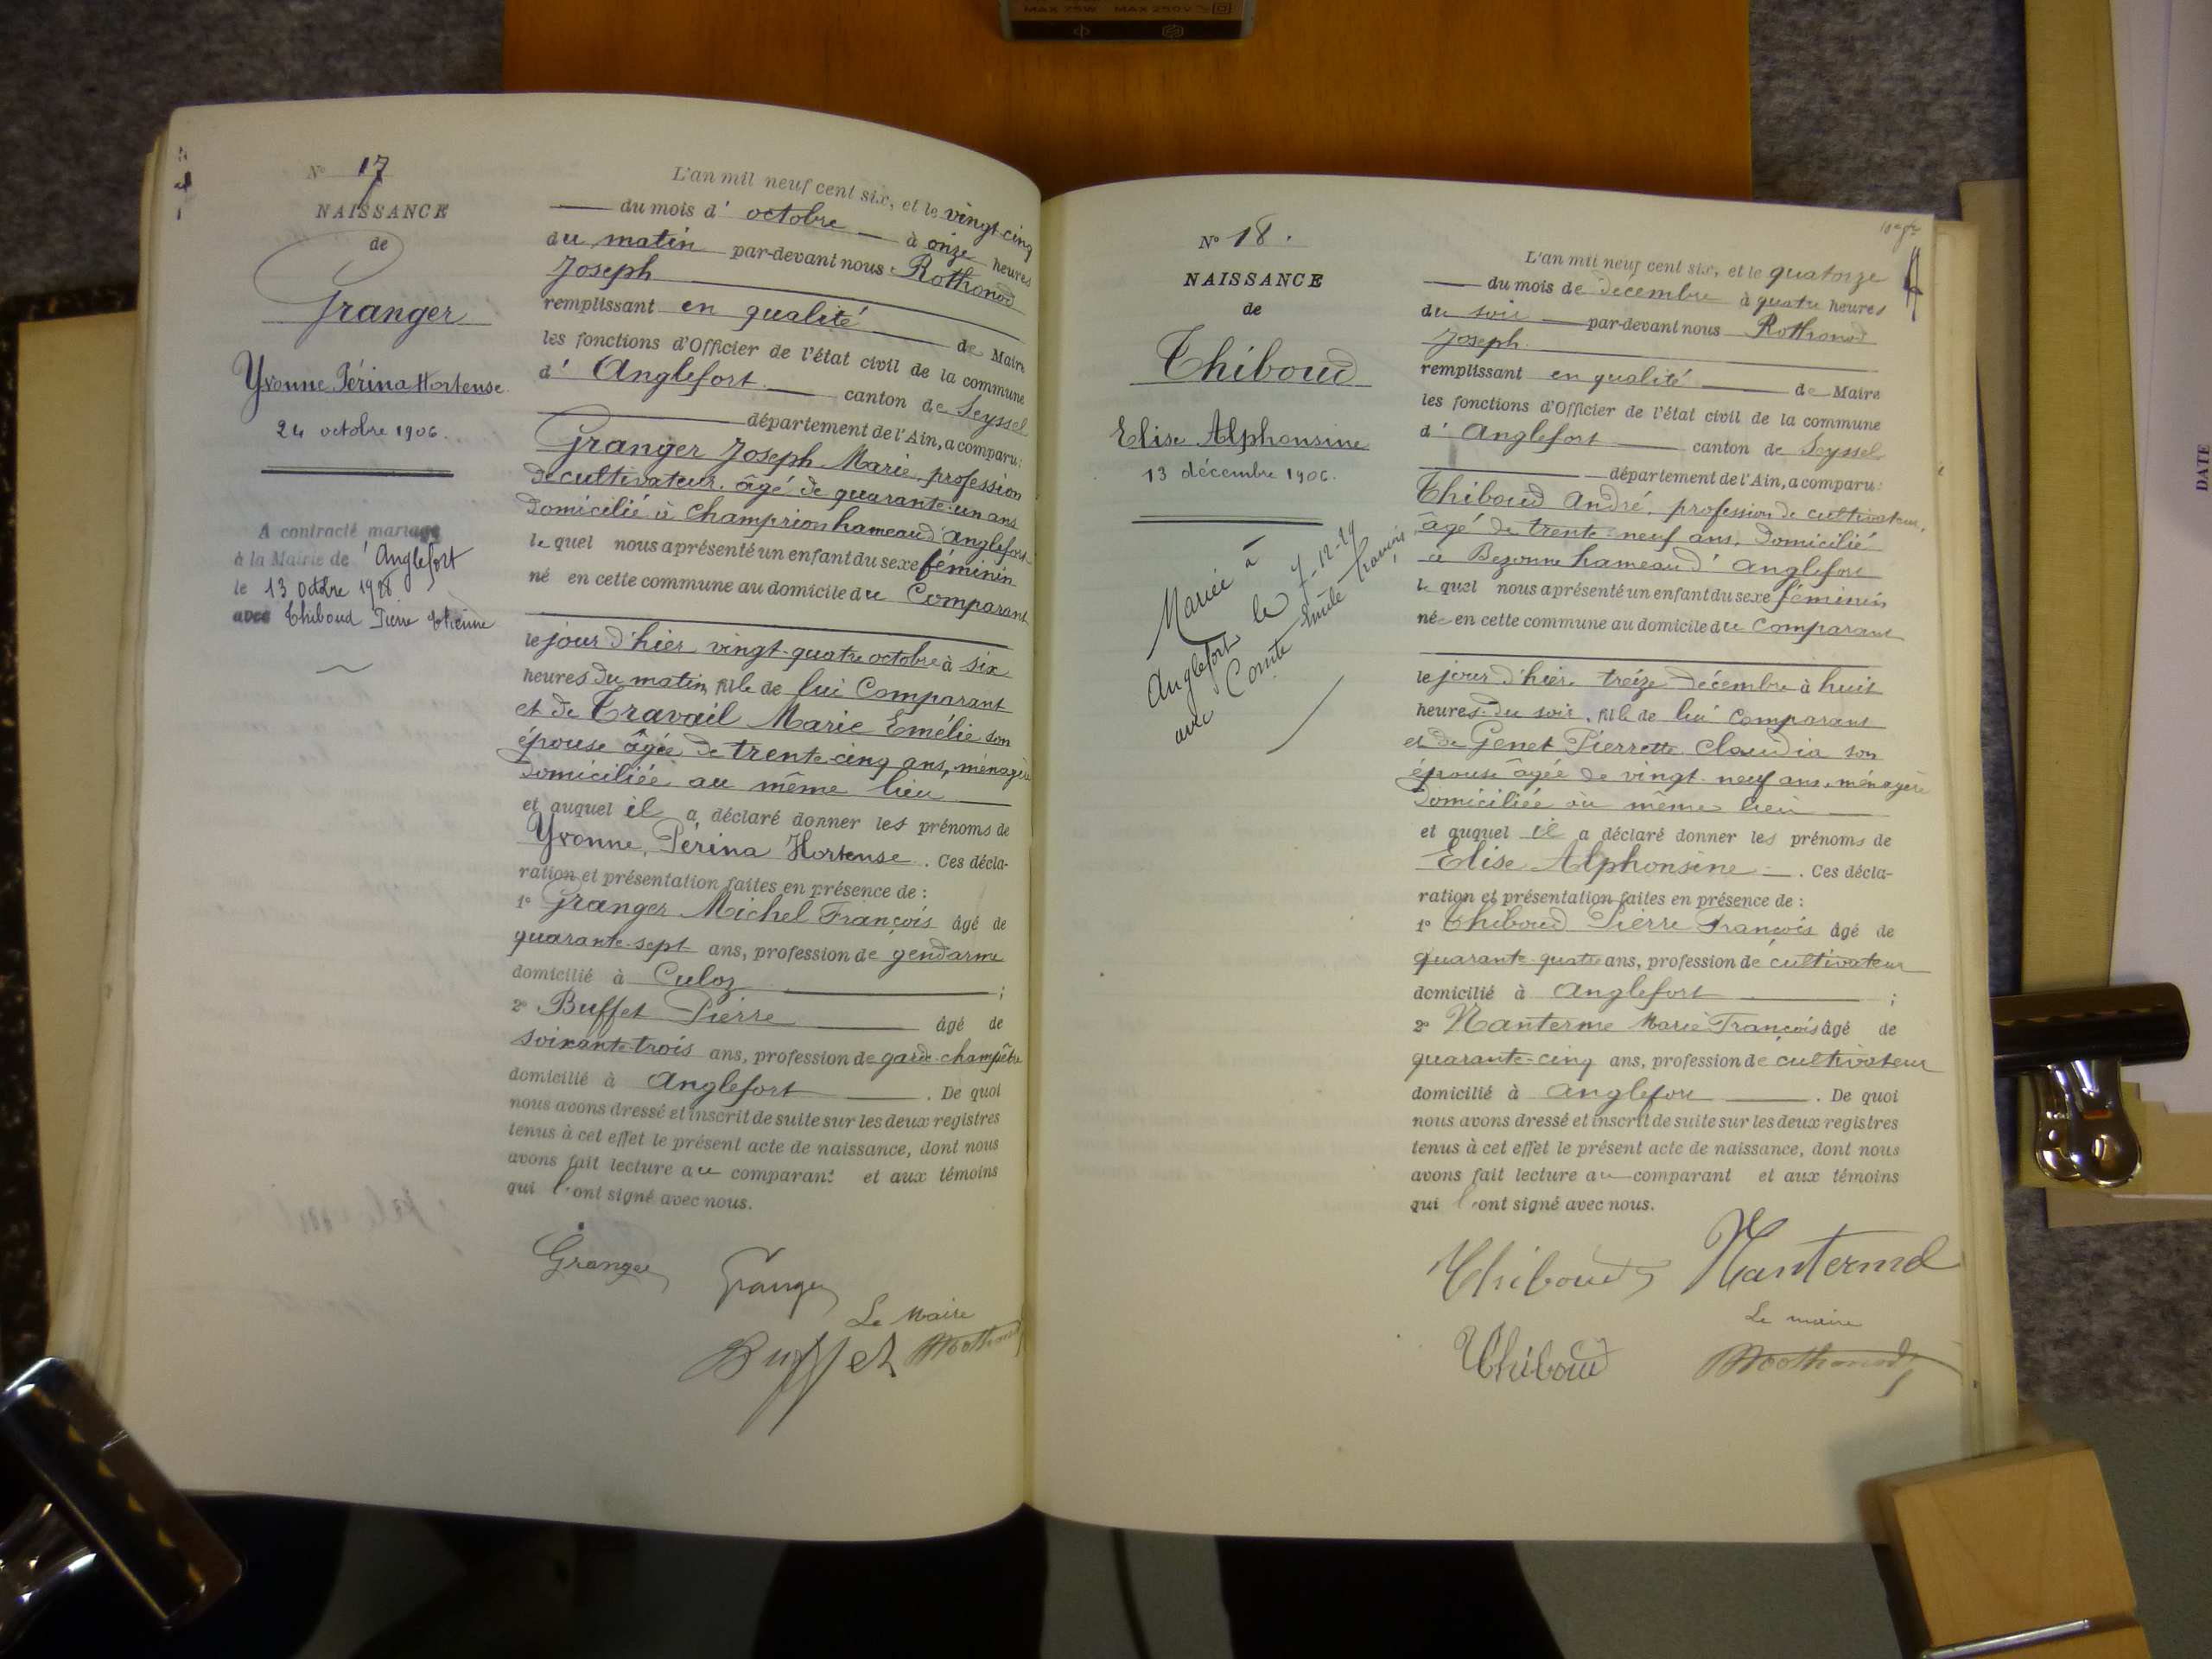 MAX 75W MAX 250V
N° 17
NAISSANCE
de
Granger
Yvonne Périna Hortense
24 octobre 1906.
A contracté mariage
à la Mairie de d'Anglefort
le 13 Octobre 1928
avec Thiboud Pierre Etienne
L'an mil neuf cent six, et le vingt-cinq
du mois d' octobre à onze heures
du matin par-devant nous Rothonod
Joseph
remplissant en qualité de Maire
les fonctions d'Officier de l'état civil de la commune
d' Anglefort canton de Seyssel
département de l'Ain, a comparu:
Granger Joseph Marie, profession
de cultivateur, âgé de quarante-un ans
domicilié à Champrion hameau d'Anglefort
lequel nous a présenté un enfant du sexe féminin
né en cette commune au domicile du Comparant
le jour d'hier vingt-quatre octobre à six
heures du matin, fille de lui Comparant
et de Travail Marie Emélie son
épouse âgée de trente-cinq ans, ménagère
domiciliée au même lieu
et auquel il a déclaré donner les prénoms de
Yvonne, Périna Hortense. Ces décla-
ration et présentation faites en présence de :
1° Granger Michel François âgé de
quarante-sept ans, profession de gendarme
domicilié à Culoz ;
2° Buffet Pierre âgé de
soixante-trois ans, profession de garde-champêtre
domicilié à Anglefort . De quoi
nous avons dressé et inscrit de suite sur les deux registres
tenus à cet effet le présent acte de naissance, dont nous
avons fait lecture au comparant et aux témoins
qui l'ont signé avec nous.
Granger Granger
Le Maire
Buffet Rothonod
N° 18.
NAISSANCE
de
Thiboud
Elise Alphonsine
13 décembre 1906.
Mariée à
Anglefort le 7-12-29
avec Comte Emile François
L'an mil neuf cent six, et le quatorze
du mois de décembre à quatre heures
du soir par-devant nous Rothonod
Joseph
remplissant en qualité de Maire
les fonctions d'Officier de l'état civil de la commune
d' Anglefort canton de Seyssel
département de l'Ain, a comparu:
Thiboud André, profession de cultivateur,
âgé de trente-neuf ans, domicilié
à Bezonne hameau d' Anglefort
lequel nous a présenté un enfant du sexe féminin
né en cette commune au domicile du Comparant
le jour d'hier treize décembre à huit
heures du soir, fille de lui Comparant
et de Genet Pierrette Claudia son
épouse âgée de vingt-neuf ans, ménagère
domiciliée au même lieu
et auquel il a déclaré donner les prénoms de
Elise Alphonsine . Ces décla-
ration et présentation faites en présence de :
1° Thiboud Pierre François âgé de
quarante-quatre ans, profession de cultivateur
domicilié à Anglefort ;
2° Nanterme Marie François âgé de
quarante-cinq ans, profession de cultivateur
domicilié à Anglefort . De quoi
nous avons dressé et inscrit de suite sur les deux registres
tenus à cet effet le présent acte de naissance, dont nous
avons fait lecture au comparant et aux témoins
qui l'ont signé avec nous.
Thiboud Nanterme
Le maire
Thiboud Rothonod
DATE